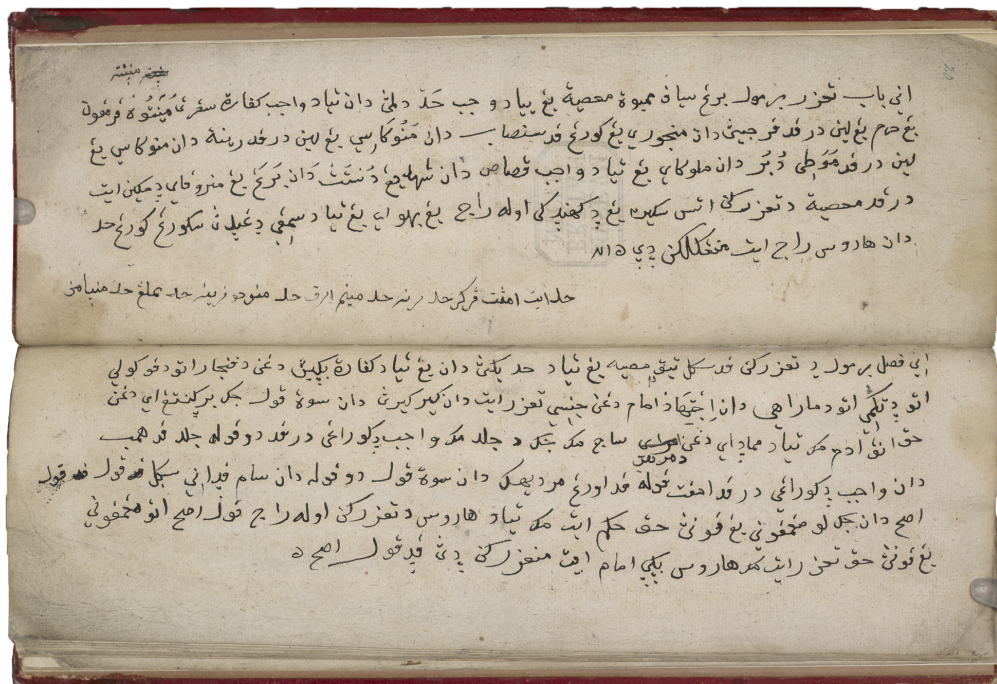 منينته
اني باب تعزر برمول برغ سياڤ ممبوة معصية يغ تياد واجب حد دلمڽ دان تياد واجب كفارة سڤرت مڽنتوه ڤرمڤون
يغ حرام يغ لين درڤد فرجيڽ دان منچوري يغ كورغ درڤد سنصاب دان منوكاسي يغ لين درڤد زينة دان منوكاسي يغ
لين درڤد موطئ دبر دان ملوكاي يغ تياد واجب قصاص دان شهادة يغ دستت دان برغ يغ مڽروڤاي دمكين ايت
درڤد معصية دتعزيركن اتس سكيرا٢ يغ دكهندكي اوله راج يغ بهواي يغ تياد سمڤي دغبيلڠن سكورغ٢ كورغ حد
دان هاروس راج ايت مڠݢلكن دي
حد ايت امڤت ڤركر حد زينه حد مينم ارق حد منودوه زينه حد مالڠ حد مڽامن
اني فصل برمول دتعزركن ڤد سكل تيڤ٢ معصية يغ تياد حد بڬيڽ دان يغ تياد كفارة بڬيڽ دڠن دڤنجارا اتو دڤوكولي
اتو دتمڤر اتو دماراهي دان اجتهاد امام دڠن جنسي تعزر ايت دان كير٢ڽ دان سوة قول جك بركنتغ اي دڠن
حق انق ادم مك تياد ممادي اي دڠن مارهي ساج مك جك دجلد مك واجب دكورغي درڤد دوڤوله جلد ڤد همب
دان واجب دكورغي درڤد امڤت ڤوله ڤد اورغ مرديهك دان سوة قول دوڤوله دان سام ڤد اني سكل قول ڤد قول
اصح دان جكلو مڠمڤوني يغ ڤوڽ حق حكم ايت مك تياد هاروس دتعزركن اوله راج ڤد قول اصح اتو مڠمڤوني
يغ ڤوڽ حق تعزر ايت مك هاروس بڬي امام ايت منعزركن دي ڤد قول اصح